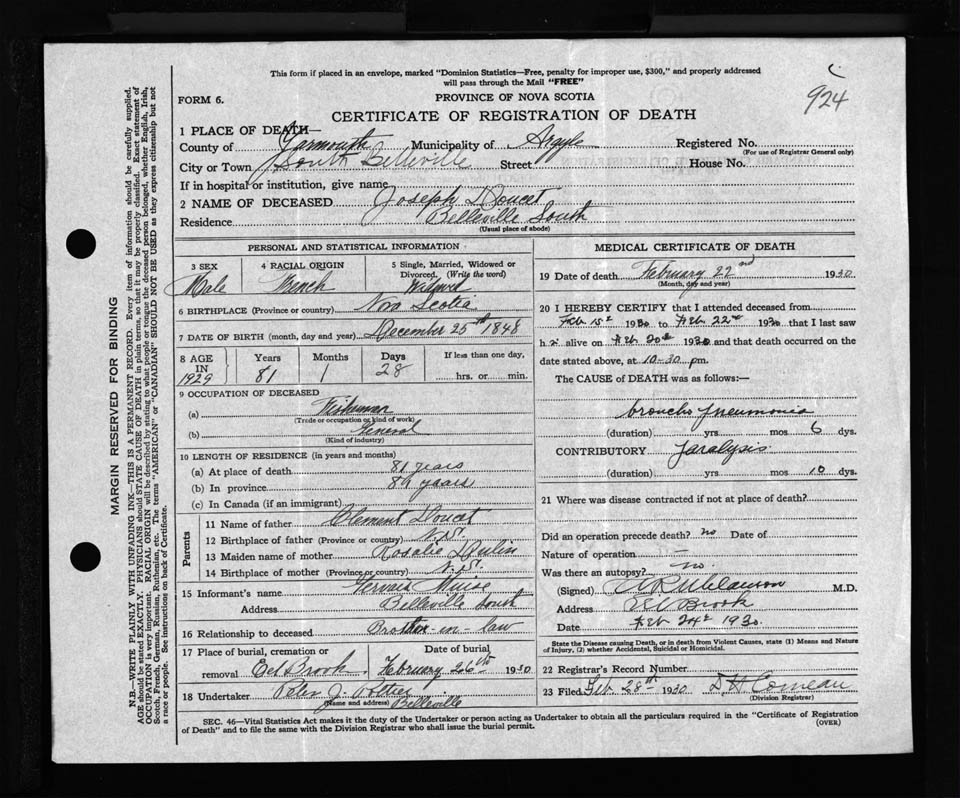 This form if placed in an envelope, marked "Dominion Statistics—Free, penalty for improper use, $300," and properly addressed
will pass through the Mail "FREE"
924
FORM 6.
PROVINCE OF NOVA SCOTIA
CERTIFICATE OF REGISTRATION OF DEATH
1 PLACE OF DEATH—
County of Yarmouth Municipality of Argyle Registered No.
(For use of Registrar General only)
City or Town South Belleville Street House No.
If in hospital or institution, give name
2 NAME OF DECEASED Joseph Doucet
Residence Belleville South
(Usual place of abode)
PERSONAL AND STATISTICAL INFORMATION
3 SEX 4 RACIAL ORIGIN 5 Single, Married, Widowed or
Divorced. (Write the word)
Male French Widowed
6 BIRTHPLACE (Province or country) Nova Scotia
7 DATE OF BIRTH (month, day and year) December 25th 1848
8 AGE Years Months Days If less than one day,
IN
1929 81 1 28 hrs. or min.
9 OCCUPATION OF DECEASED
(a) Fisherman
(Trade or occupation or kind of work)
(b) General
(Kind of industry)
10 LENGTH OF RESIDENCE (in years and months)
(a) At place of death 81 years
(b) In province 81 years
(c) In Canada (if an immigrant)
Parents
11 Name of father Clement Doucet
12 Birthplace of father (Province or country) N.S.
13 Maiden name of mother Rosalie
14 Birthplace of mother (Province or country) N.S.
15 Informant's name Muise
Address Belleville South
16 Relationship to deceased Brother-in-law
17 Place of burial, cremation or Date of burial
removal Eel Brook, February 26th 1930
18 Undertaker Peter J. Pottier
(Name and address) Belleville
MEDICAL CERTIFICATE OF DEATH
19 Date of death February 22nd 1930
(Month, day and year)
20 I HEREBY CERTIFY that I attended deceased from
Feb 15th 1930 to Feb 22nd 1930 that I last saw
h i alive on Feb 20th 1930 and that death occurred on the
date stated above, at 10-30 pm.
The CAUSE OF DEATH was as follows:—
broncho pneumonia
(duration) yrs mos 6 dys.
CONTRIBUTORY Paralysis
(duration) yrs mos 10 dys.
21 Where was disease contracted if not at place of death?
Did an operation precede death? no Date of
Nature of operation —
Was there an autopsy? no.
(Signed) M.D.
Address Eel Brook
Date Feb 24th 1930.
State the Disease causing Death, or in death from Violent Causes, state (1) Means and Nature
of Injury, (2) whether Accidental, Suicidal or Homicidal.
22 Registrar's Record Number
23 Filed Feb. 28th 1930 Comeau
(Division Registrar)
SEC. 46—Vital Statistics Act makes it the duty of the Undertaker or person acting as Undertaker to obtain all the particulars required in the "Certificate of Registration
of Death" and to file the same with the Division Registrar who shall issue the burial permit.
(OVER)
MARGIN RESERVED FOR BINDING
N.B.—WRITE PLAINLY WITH UNFADING INK—THIS IS A PERMANENT RECORD. Every item of information should be carefully supplied.
AGE should be stated EXACTLY. PHYSICIANS should STATE CAUSE OF DEATH in plain terms, so that it may be properly classified. Exact statement of
OCCUPATION is very important. RACIAL ORIGIN will be described by stating to what people or tongue the deceased person belonged, whether English, Irish,
Scotch, French, German, Russian, Ruthenian, etc. The terms "AMERICAN" or "CANADIAN" SHOULD NOT BE USED as they express citizenship but not
a race or people. See instructions on back of Certificate.